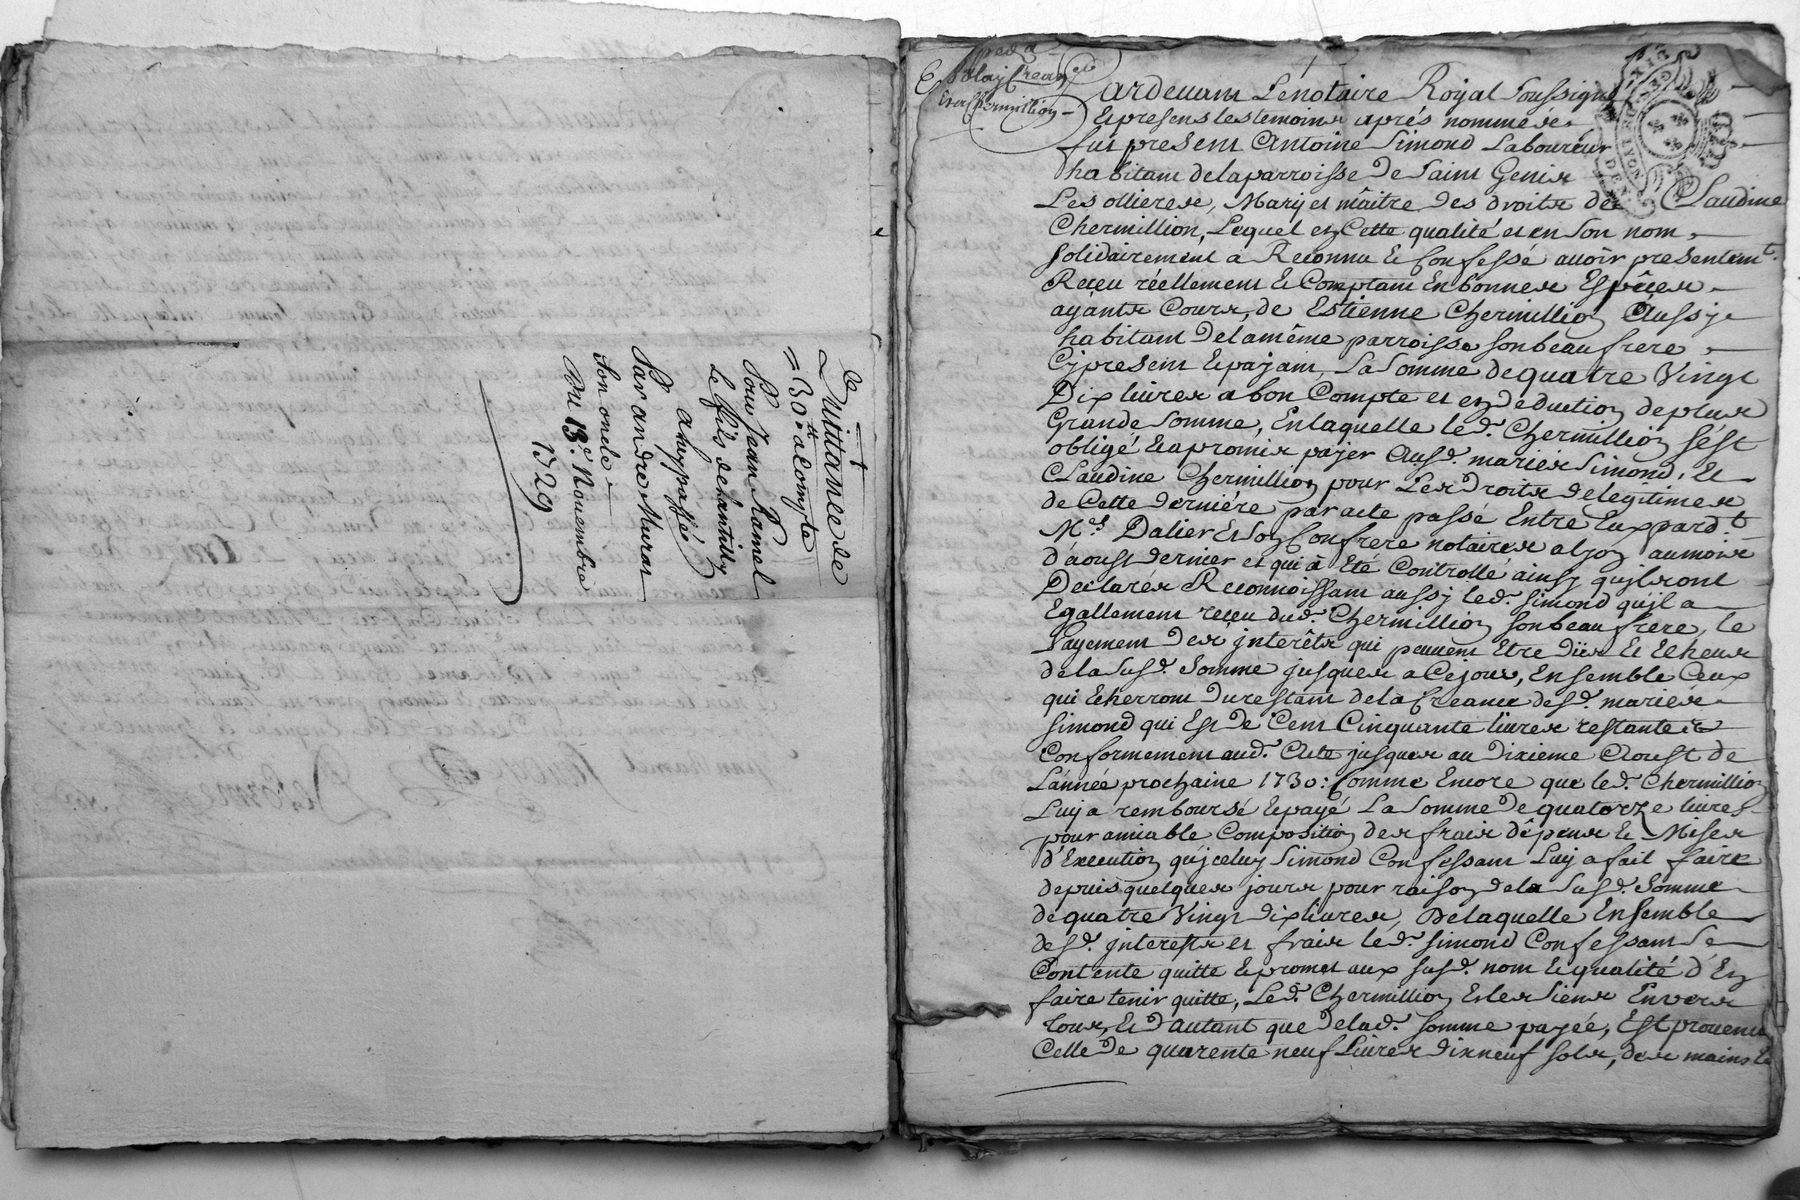 de
Quittance de
30 ₶ acompte
Pour Jean Kamel
Le fils de chantilly
a luy passée
Par andre Murat
Son oncle
Du 13.e Nouembre
1729
Chermillion
Pardeuant Le notaire Royal soussigné
& presens les temoins aprés nommes
fut present Antoine Simond Laboureur
habitant de la parroisse de Saint Genis
Les ollieres, Mary et màitre des droits de Claudine
Chermillion, Lequel en Cette qualité et en son nom
solidairement a Reconnu & Confessé auoir presentem.t
Receu réellement & Comptant En bonnes Espêces
ayants Cours, de Estienne Chermillion Aussy
habitant de la même parroisse son beau frere
Cy present & payant, La Somme de quatre Vingt
Dix liures a bon Compte et en deduction de plus
Grande Somme, En laquelle led. Chermillion s'est
obligé & a promis payer Ausd. mariés Simond, &
Claudine Chermillion pour Les Droits de legitimes
de Cette derniére par acte passé Entre Eux pard.t
M.es Dalier & son Confrere notaires a lyon au mois
d'aoust dernier et qui à Eté Controllé ainsy qu'ils ont
Declares Reconnoissant aussy led. Simond qu'il a
Egallement receu dud. Chermillion son beau frere, le
Payement des jnterêts qui peuuent Etre dûs & Echeus
de la susd. Somme jusques a Cejour, Ensemble Ceux
qui Echerront du restant de la Creance desd. mariés
Simond qui Est de Cent Cinquante liures restantes
Conformement aud. Acte jusques au dixieme Aoust de
L'année prochaine 1730: Comme Encore que led. Chermillion
Luy a remboursé & payé La Somme de quatorze liures
pour amiable Composition des frais dêpens & Mises
d'Execution qu'jceluy Simond Confessant Luy a fait faire
depuis quelques jours pour raison de la susd. Somme
de quatre Vingt dix liures, De laquelle Ensemble
desd. jnterests et frais led. Simond Confessant Se
Contente quitte & promet aux susd. nom & qualité d'En
faire tenir quitte, Led. Chermillion & les siens Enuers
tous, & D'autant que de lad. Somme payée, Est prouenu
Celle de quarente neuf Liures dixneuf sols, des mains &